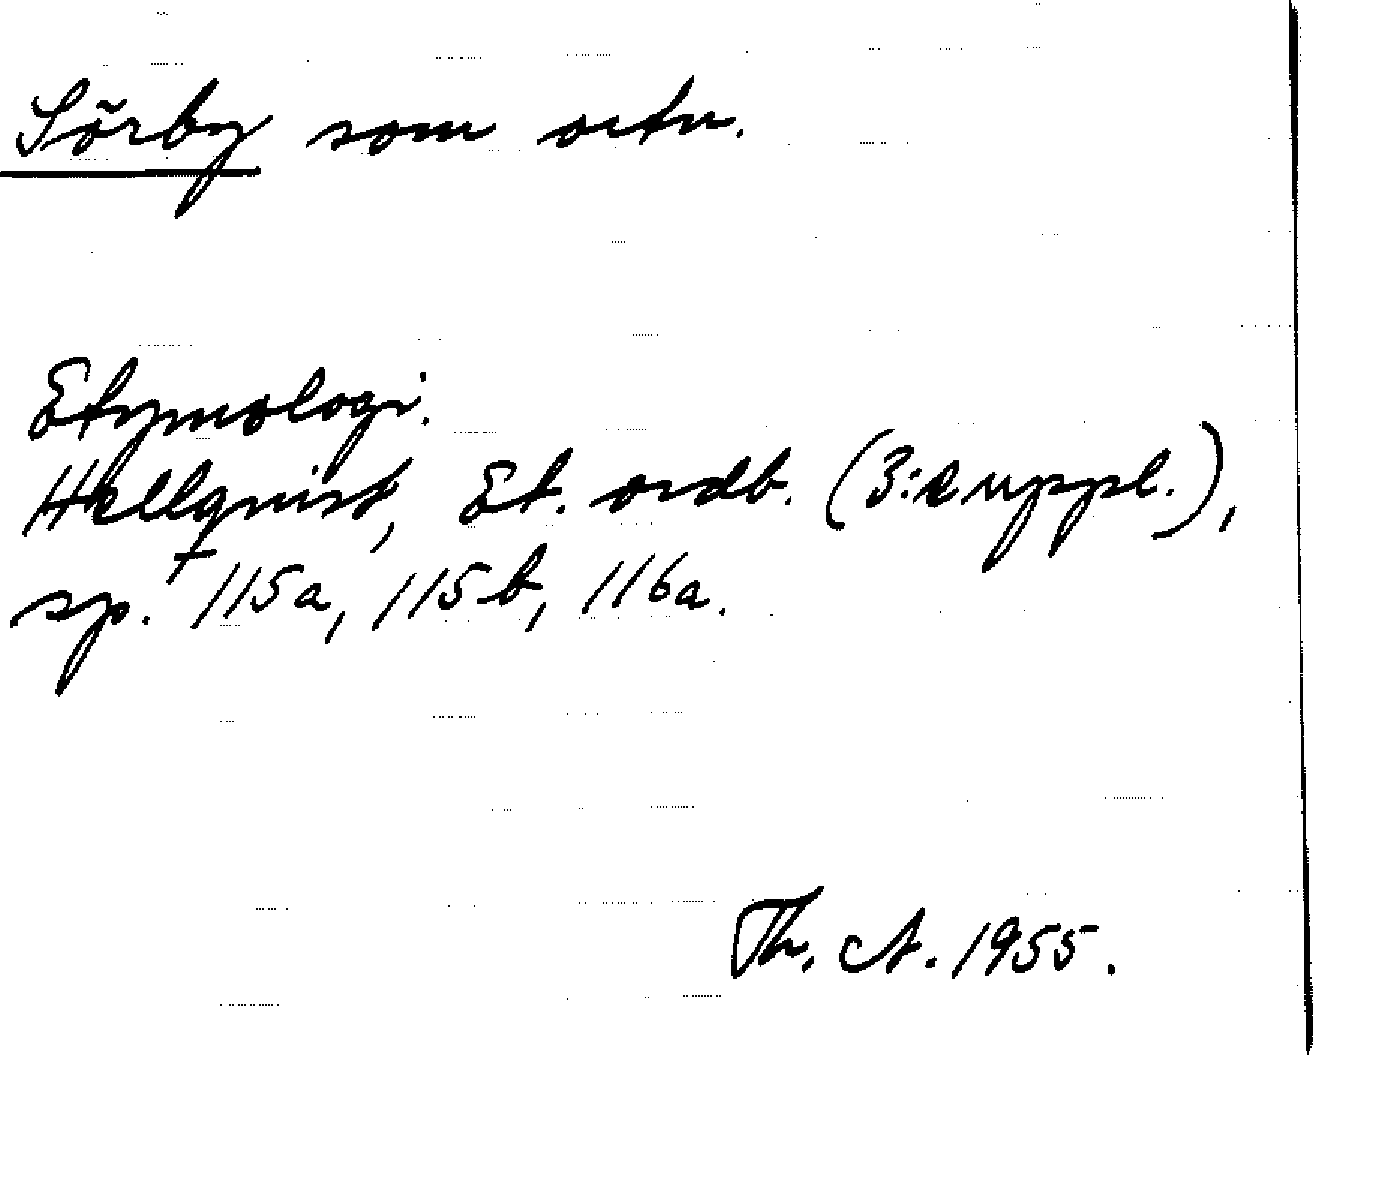 Sörby som ortn.
Etymologi.
Hellquist, Et. ordb. (3:e uppl.),
sp. 1115a, 1115b, 1116a.
Th. A. 1955.